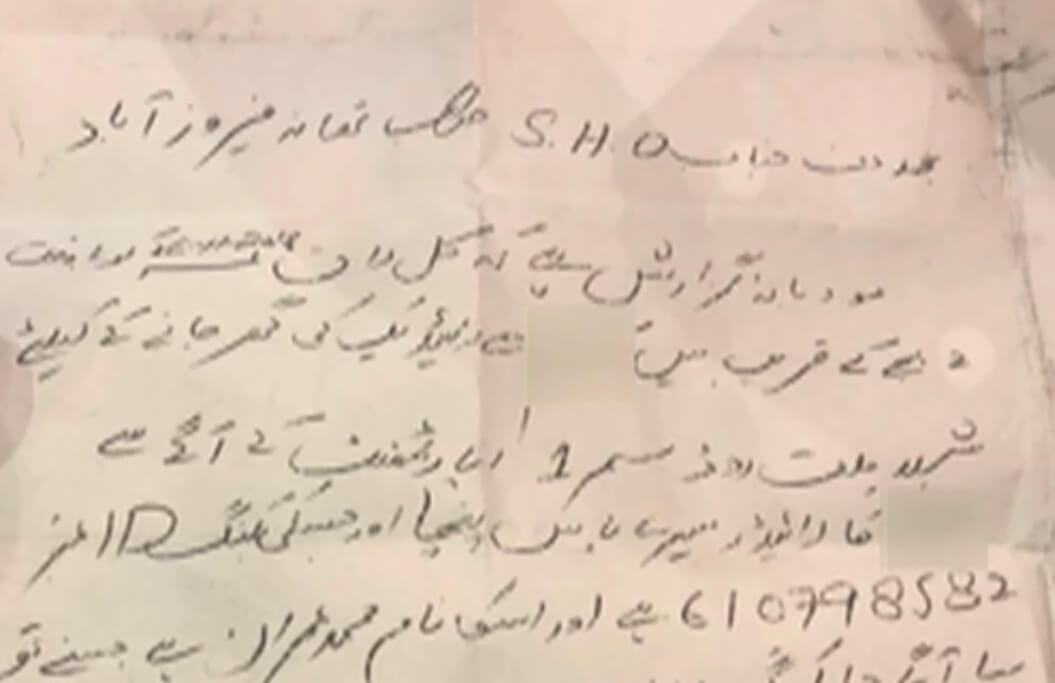 بخدمت جناب S.H.O صاحب تھانہ فیروز آباد
مودبانہ گزارش ہے کہ کل رات
بجے کے قریب میں نے رائیڈ بک کی گھر جانے کے لیئے
شہید ملت روڈ سمر 1 اپارٹمنٹ کے آگے سے
کا رائیڈر میرے پاس پہنچا اور جسکی بکنگ ID نمبر
6107498582 ہے اور اسکا نام محمد عمران ہے جسنے